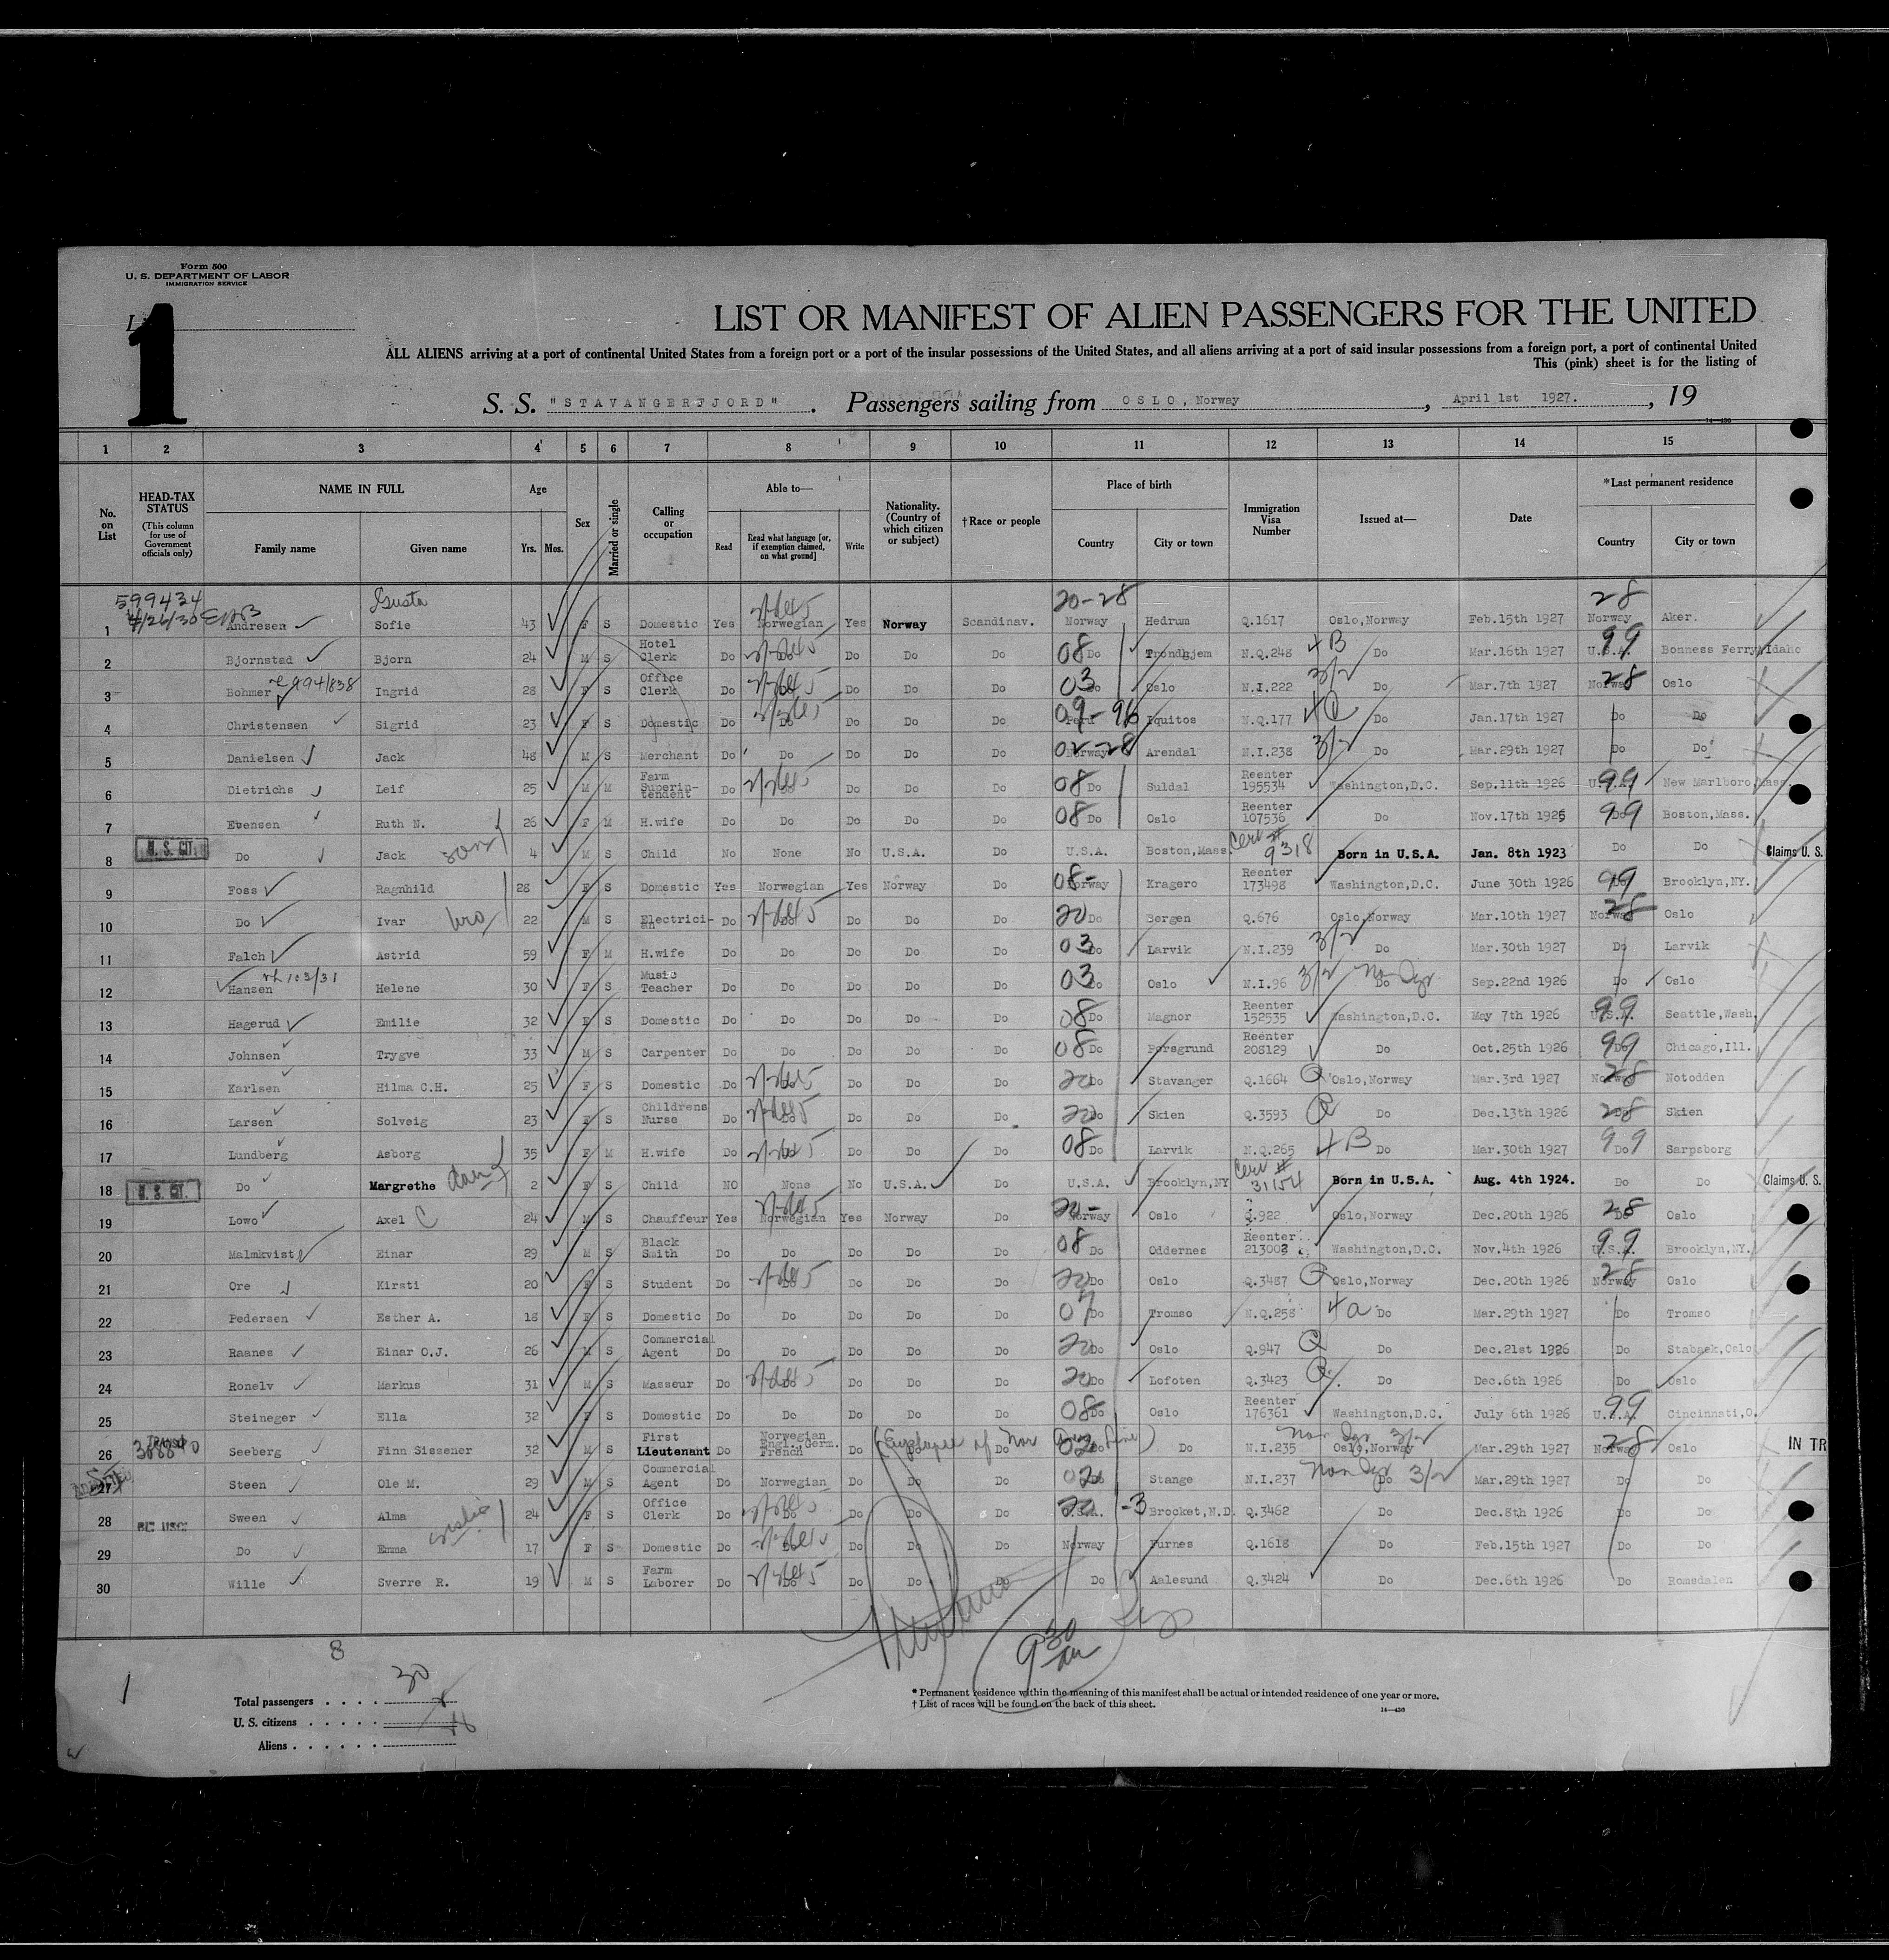 Form 500
U. S. DEPARTMENT OF LABOR
IMMIGRATION SERVICE
1
LIST OR MANIFEST OF ALIEN PASSENGERS FOR THE UNITED
ALL ALIENS arriving at a port of continental United States from a foreign port or a port of the insular possessions of the United States, and all aliens arriving at a port of said insular possessions from a foreign port, a port of continental United
This (pink) sheet is for the listing of
S. S. "STAVANGERFJORD". Passengers sailing from OSLO, Norway, April 1st 1927., 19
1 2 3 4 5 6 7 8 9 10 11 12 13 14 15
No. on List
HEAD-TAX STATUS (This column for use of Government officials only)
NAME IN FULL Family name Given name
Age Yrs. Mos.
Sex
Married or single
Calling or occupation
Able to— Read Read what language [or, if exemption claimed, on what ground] Write
Nationality. (Country of which citizen or subject)
† Race or people
Place of birth Country City or town
Immigration Visa Number
Issued at—
Date
*Last permanent residence Country City or town
599434 Gusta 20-28 28
1 4/26/30 Andresen Sofie 43 F S Domestic Yes Norwegian Yes Norway Scandinav. Norway Hedrum Q.1617 Oslo,Norway Feb.15th 1927 Norway Aker.
2 Bjornstad Bjorn 24 M S Hotel Clerk Do Do Do Do Do 08 Do Trondhjem N.Q.248 4B Do Mar.16th 1927 U.S.A. 99 Bonness Ferry,Idaho
3 Bohmer Ingrid 28 F S Office Clerk Do Do Do Do Do 03 Do Oslo N.I.222 3/2 Do Mar.7th 1927 Norway 28 Oslo
4 Christensen Sigrid 23 F S Domestic Do Do Do Do Do 09-96 Peru Iquitos N.Q.177 Do Jan.17th 1927 Do Do
5 Danielsen Jack 48 M S Merchant Do Do Do Do Do 02-28 Norway Arendal N.I.238 3/2 Do Mar.29th 1927 Do Do
6 Dietrichs Leif 25 M M Farm Superintendent Do Do Do Do Do 08 Do Suldal Reenter 195534 Washington,D.C. Sep.11th 1926 U.S.A. 99 New Marlboro,Mass.
7 Evensen Ruth N. 26 F M H.wife Do Do Do Do Do 08 Do Oslo Reenter 107536 Do Nov.17th 1925 Do 99 Boston,Mass.
8 U. S. CIT. Do Jack son 4 M S Child No None No U.S.A. Do U.S.A. Boston,Mass Cert # 9318 Born in U.S.A. Jan. 8th 1923 Do Do Claims U. S.
9 Foss Ragnhild 28 F S Domestic Yes Norwegian Yes Norway Do 08- Norway Kragero Reenter 173498 Washington,D.C. June 30th 1926 Do 99 Brooklyn,NY.
10 Do Ivar bro 22 M S Electrician Do Do Do Do Do 20 Do Bergen Q.676 Oslo,Norway Mar.10th 1927 Norway 28 Oslo
11 Falch Astrid 59 F M H.wife Do Do Do Do Do 03 Do Larvik N.I.239 3/2 Do Mar.30th 1927 Do Larvik
12 Hansen Helene 30 F S Music Teacher Do Do Do Do Do 03 Do Oslo N.I.96 3/2 Do Sep.22nd 1926 Do Oslo
13 Hagerud Emilie 32 F S Domestic Do Do Do Do Do 08 Do Magnor Reenter 152535 Washington,D.C. May 7th 1926 U.S.A. 99 Seattle,Wash.
14 Johnsen Trygve 33 M S Carpenter Do Do Do Do Do 08 Do Porsgrund Reenter 208129 Do Oct.25th 1926 Do 99 Chicago,Ill.
15 Karlsen Hilma C.H. 25 F S Domestic Do Do Do Do Do 20 Do Stavanger Q.1664 Q Oslo,Norway Mar.3rd 1927 Norway 28 Notodden
16 Larsen Solveig 23 F S Childrens Nurse Do Do Do Do Do 20 Do Skien Q.3593 Q Do Dec.13th 1926 Do 28 Skien
17 Lundberg Asborg 35 F M H.wife Do Do Do Do Do 08 Do Larvik N.Q.265 4B Do Mar.30th 1927 Do 99 Sarpsborg
18 U. S. CIT. Do Margrethe dau 2 F S Child NO None No U.S.A. Do U.S.A. Brooklyn,NY Cert # 31154 Born in U.S.A. Aug. 4th 1924. Do Do Claims U. S.
19 Lowo Axel C 24 M S Chauffeur Yes Norwegian Yes Norway Do 20- Norway Oslo Q.922 Oslo,Norway Dec.20th 1926 Do 28 Oslo
20 Malmkvist Einar 29 M S Black Smith Do Do Do Do Do 08 Do Oddernes Reenter 213002 Washington,D.C. Nov.4th 1926 U.S.A. 99 Brooklyn,NY.
21 Ore Kirsti 20 F S Student Do Do Do Do Do 20 Do Oslo Q.3487 Q Oslo,Norway Dec.20th 1926 Norway 28 Oslo
22 Pedersen Esther A. 18 F S Domestic Do Do Do Do Do 07 Do Tromso N.Q.258 4a Do Mar.29th 1927 Do Tromso
23 Raanes Einar O.J. 26 M S Commercial Agent Do Do Do Do Do 20 Do Oslo Q.947 Q Do Dec.21st 1926 Do Stabaek,Oslo
24 Ronelv Markus 31 M S Masseur Do Do Do Do Do 20 Do Lofoten Q.3423 Q Do Dec.6th 1926 Do Oslo
25 Steineger Ella 32 F S Domestic Do Do Do Do Do 08 Do Oslo Reenter 176361 Washington,D.C. July 6th 1926 U.S.A. 99 Cincinnati,O.
26 Seeberg Finn Sissener 32 M S First Lieutenant Do Norwegian Engl., Germ. French Do Do Do 02 Do Do N.I.235 3/2 Oslo,Norway Mar.29th 1927 Norway 28 Oslo IN TR
27 Steen Ole M. 29 M S Commercial Agent Do Norwegian Do Do Do 02 Do Stange N.I.237 3/2 Do Mar.29th 1927 Do Do
28 Sween Alma 24 F S Office Clerk Do Do Do Do Do U.S.A. -3 Brocket,N.D. Q.3462 Do Dec.8th 1926 Do Do
29 Do Emma 17 F S Domestic Do Do Do Do Do Norway Furnes Q.1618 Do Feb.15th 1927 Do Do
30 Wille Sverre R. 19 M S Farm Laborer Do Do Do Do Do Do Aalesund Q.3424 Do Dec.6th 1926 Do Romsdalen
8
1
Total passengers . . . . 30
U. S. citizens . . . . .
Aliens . . . . . .
9 30
* Permanent residence within the meaning of this manifest shall be actual or intended residence of one year or more.
† List of races will be found on the back of this sheet.
14—430